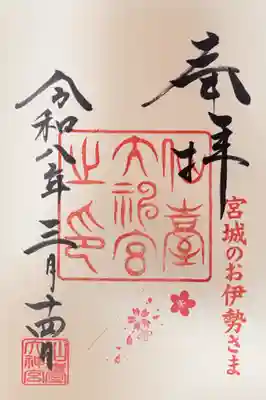 奉拝
宮城のお伊勢さま
仙臺
大神宮
之印
令和八年 三月十四日
仙臺
大神宮